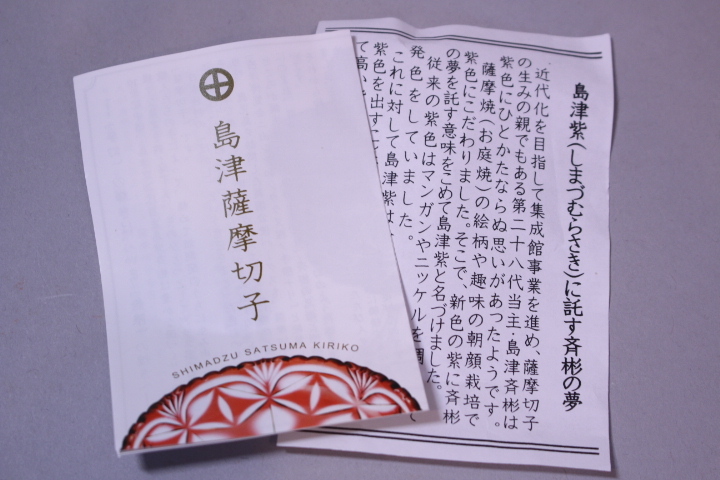 島津薩摩切子
SHIMADZU SATSUMA KIRIKO
島津紫(しまづむらさき)に託す斉彬の夢
近代化を目指して集成館事業を進め、薩摩切子
の生みの親でもある第二十八代当主・島津斉彬は
紫色にひとかたならぬ思いがあったようです。
薩摩焼(お庭焼)の絵柄や趣味の朝顔栽培で
紫色にこだわりました。そこで、新色の紫に斉彬
の夢を託す意味をこめて島津紫と名づけました。
従来の紫色はマンガンやニッケルを調
発色をしていました。
これに対して島津紫は、
紫色を出すこと
て高い